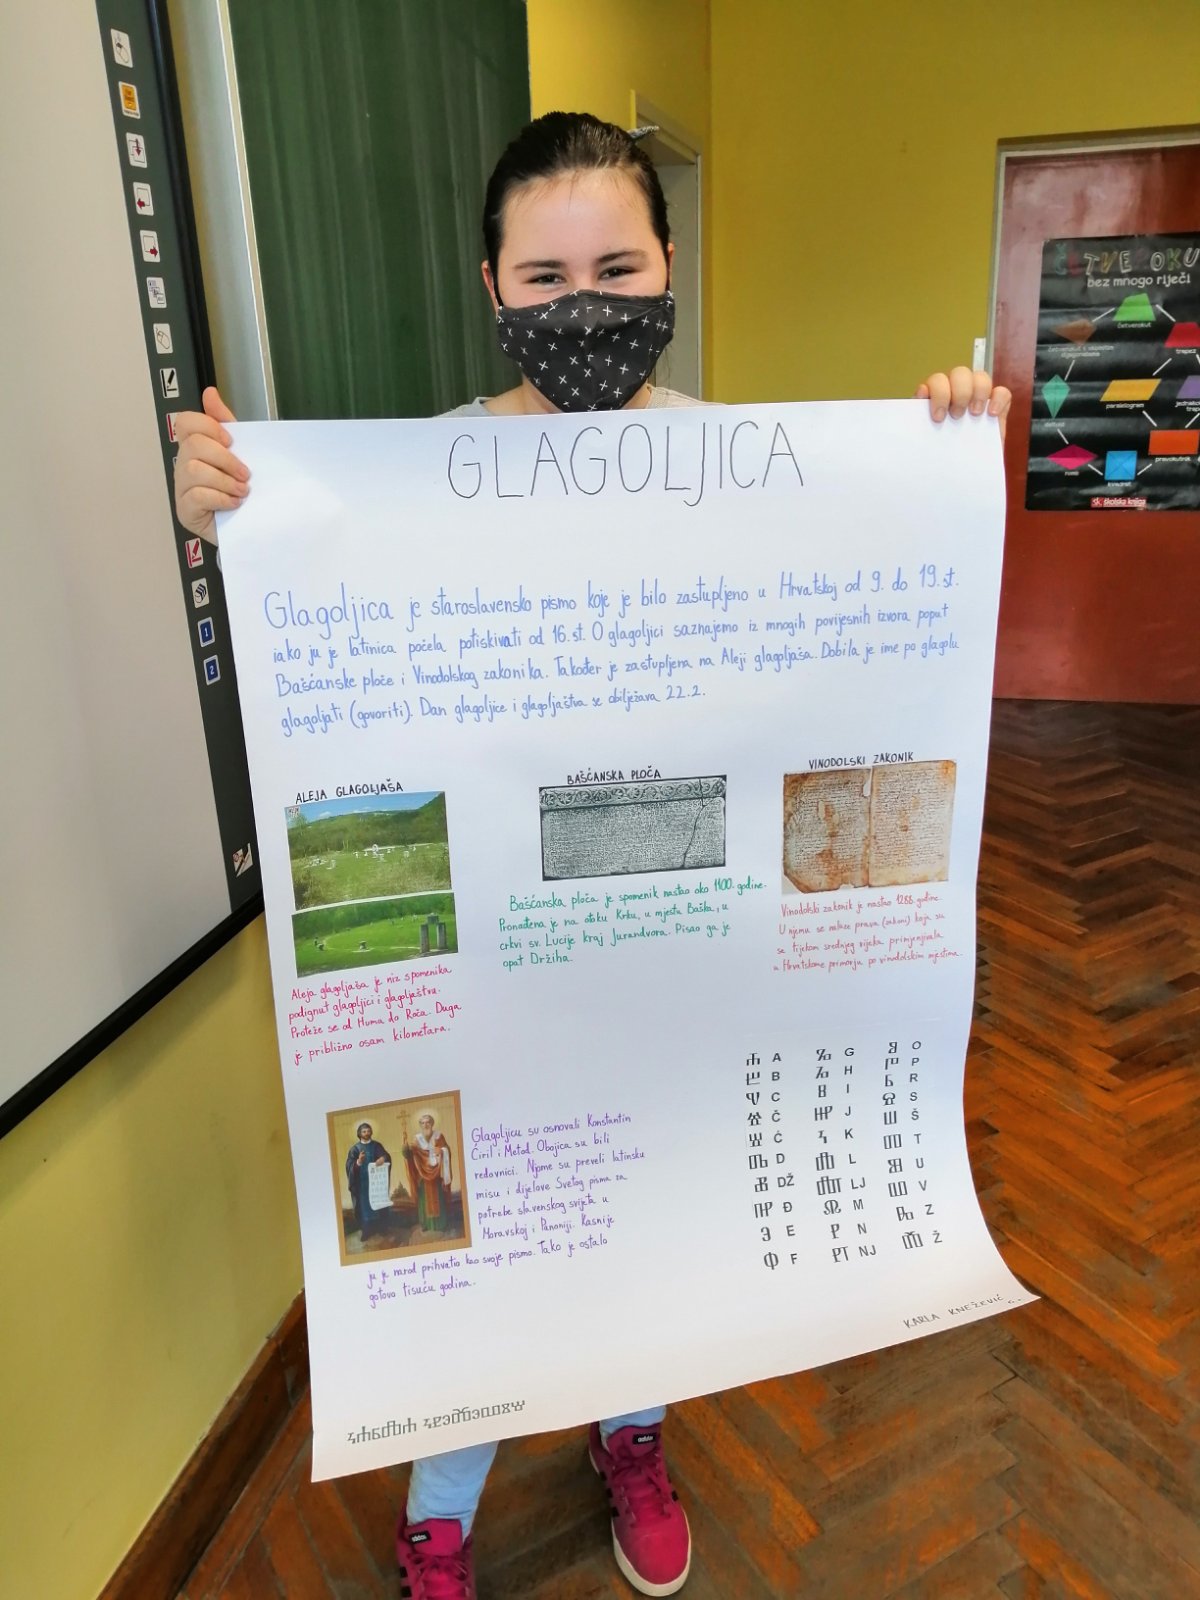 GLAGOLJICA
Glagoljica je staroslavensko pismo koje je bilo zastupljeno u Hrvatskoj od 9. do 19. st.
iako ju je latinica počela potiskivati od 16. st. O glagoljici saznajemo iz mnogih povijesnih izvora poput
Bašćanske ploče i Vinodolskog zakonika. Također je zastupljena na Aleji glagoljaša. Dobila je ime po glagolu
glagoljati (govoriti). Dan glagoljice i glagoljaštva se obilježava 22.2.
ALEJA GLAGOLJAŠA
Aleja glagoljaša je niz spomenika
podignut glagoljici i glagoljaštvu.
Proteže se od Huma do Roča. Duga
je približno osam kilometara.
BAŠĆANSKA PLOČA
Bašćanska ploča je spomenik nastao oko 1100. godine.
Pronađena je na otoku Krku, u mjestu Baška, u
crkvi sv. Lucije kraj Jurandvora. Pisao ga je
opat Držiha.
VINODOLSKI ZAKONIK
Vinodolski zakonik je nastao 1288. godine.
U njemu se nalaze prava (zakoni) koja su
se tijekom srednjeg vijeka primjenjivala
u Hrvatskome primorju po vinodolskim mjestima.
Glagoljicu su osnovali Konstantin
Ćiril i Metod. Obojica su bili
redovnici. Njome su preveli latinsku
misu i dijelove Svetog pisma za
potrebe slavenskog svijeta u
Moravskoj i Panoniji. Kasnije
ju je narod prihvatio kao svoje pismo. Tako je ostalo
gotovo tisuću godina.
Ⰰ A
Ⰱ B
Ⱌ C
Ⱍ Č
Ć
Ⰴ D
DŽ
Đ
Ⰵ E
Ⱇ F
Ⰳ G
H
I
J
Ⰽ K
Ⰾ L
LJ
Ⰿ M
Ⱀ N
NJ
Ⱁ O
Ⱂ P
Ⱃ R
Ⱄ S
Ⱎ Š
Ⱅ T
Ⱆ U
Ⰲ V
Ⰸ Z
Ⰶ Ž
KARLA KNEŽEVIĆ
ČETVEROKU
bez mnogo riječi
četverokut
paralelogram
deltoid
romb
kvadrat
pravokutnik
školska knjiga
1
2
adidas